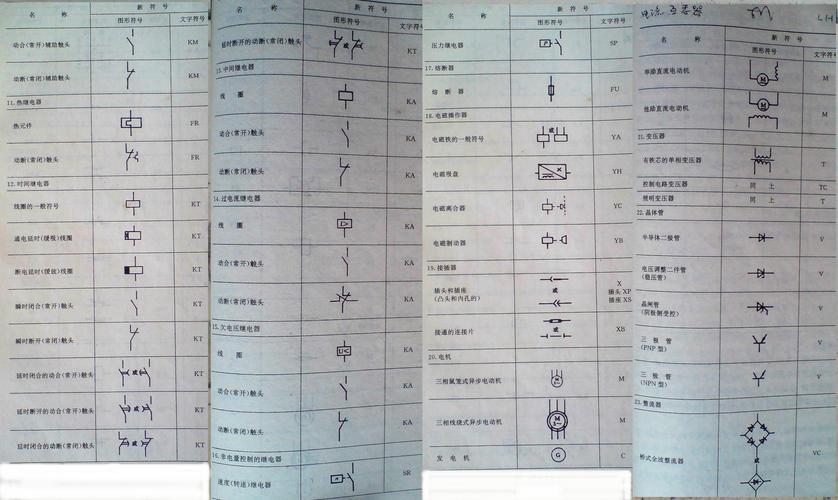 名 称
新 符 号
图形符号 文字符号
动合(常开)辅助触头 KM
动断(常闭)辅助触头 KM
11.热继电器
热元件 FR
动断(常闭)触头 FR
12.时间继电器
线圈的一般符号 KT
通电延时(缓吸)线圈 KT
断电延时(缓放)线圈 KT
瞬时闭合(常开)触头 KT
瞬时断开(常闭)触头 KT
延时闭合的动合(常开)触头 或 KT
延时断开的动合(常开)触头 或 KT
延时闭合的动断(常闭)触头 或 KT
名 称
新 符 号
图形符号 文字符号
延时断开的动断(常闭)触头 或 KT
13.中间继电器
线 圈 KA
动合(常开)触头 KA
动断(常闭)触头 KA
14.过电流继电器
线 圈 I> KA
动合(常开)触头 KA
动断(常闭)触头 KA
15.欠电压继电器
线 圈 U< KA
动合(常开)触头 KA
动断(常闭)触头 KA
16.非电量控制的继电器
速度(转速)继电器 SR
名 称
新 符 号
图形符号 文字符号
压力继电器 P SP
17.熔断器
熔 断 器 FU
18.电磁操作器
电磁铁的一般符号 或 YA
电磁吸盘 YH
电磁离合器 YC
电磁制动器 YB
19.接插器
插头和插座
(凸头和内孔的)
或
X
插头 XP
插座 XS
接通的连接片 或 XB
20.电机
三相鼠笼式异步电动机 M
三相线绕式异步电动机 M 3~ M
发 电 机 G C
电流互感器
名 称
新 符 号
图形符号 文字符
串励直流电动机 M M
他励直流电动机 M M
21.变压器
有铁芯的单相变压器 T
控制电路变压器 同 上 TC
照明变压器 同 上 T
22.晶体管
半导体二极管 V
电压调整二件管
(稳压管) V
晶闸管
(阴极侧受控) V
三 极 管
(PNP 型) V
三 极 管
(NPN 型) V
23.整流器
桥式全波整流器 或 VC